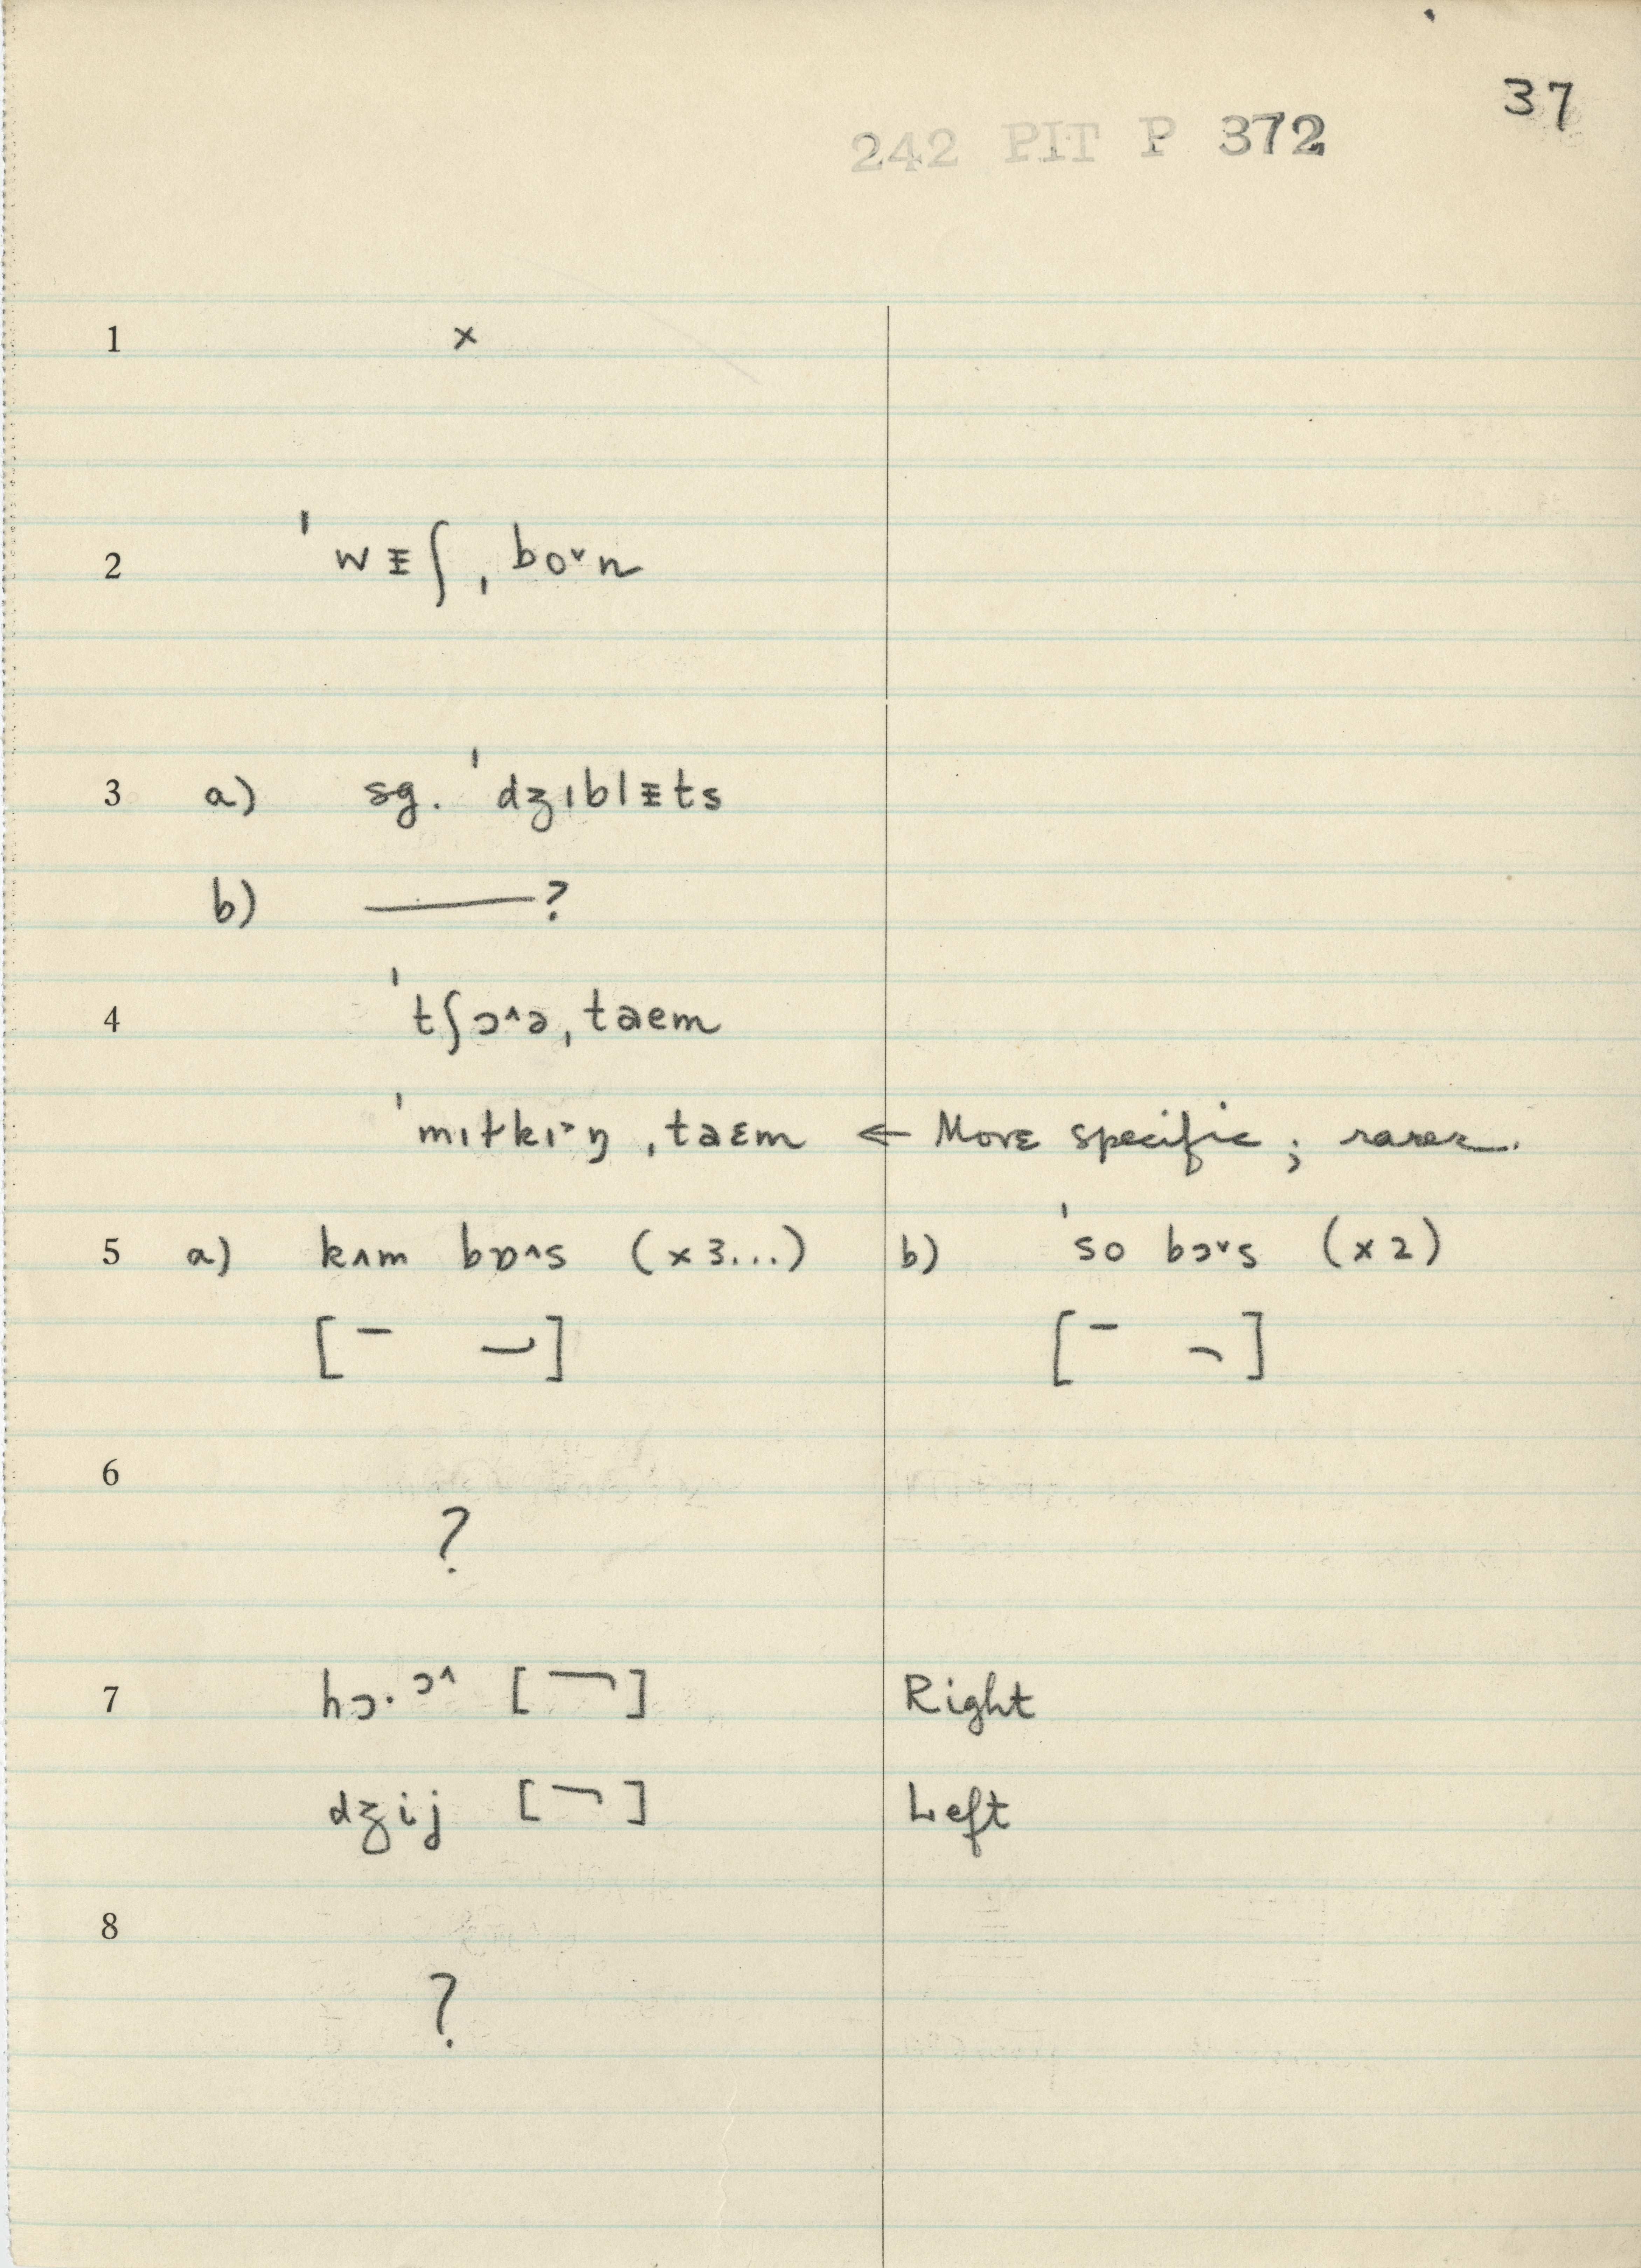 37
242 PIT P 372
1 ×
2 ˈwᵻʃˌboˇn
3 a) sg. ˈdʒɪblᵻts
b) ——?
4 ˈtʃɔ^əˌtaem
ˈmɪtkɪ˃ŋˌtaɛm ← More specific; rarer.
5 a) kʌm bɒ^s (×3...) b) ˈso bɔˇs (×2)
[‾ ]
[‾ ¬]
6
?
7 hɔ·ɔ^ [¬] Right
dʒij [¬] Left
8
?